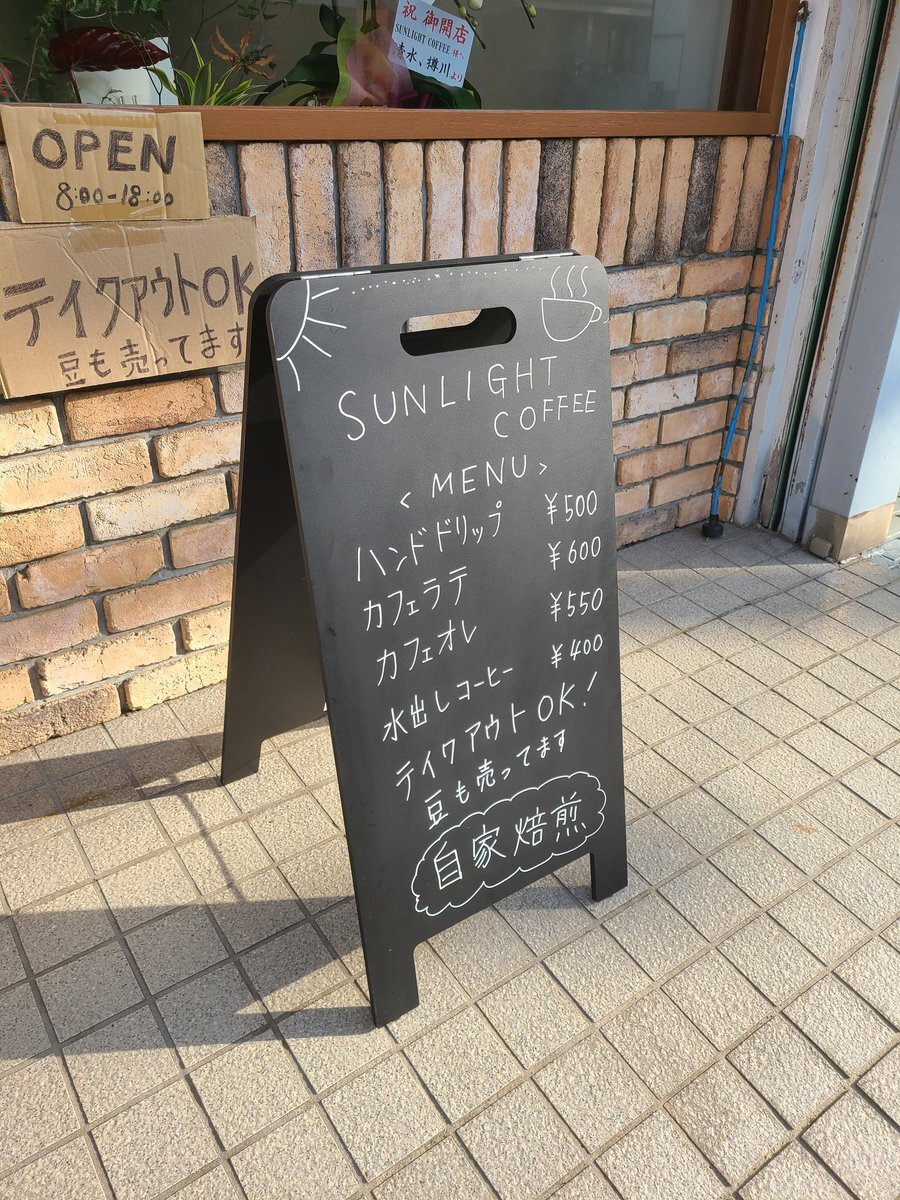 祝 御開店
SUNLIGHT COFFEE 様へ
清水、樽川より
OPEN
8:00-18:00
テイクアウトOK
豆も売ってます
SUNLIGHT
COFFEE
<MENU>
ハンドドリップ ¥500
カフェラテ ¥600
カフェオレ ¥550
水出しコーヒー ¥400
テイクアウトOK!
豆も売ってます
自家焙煎